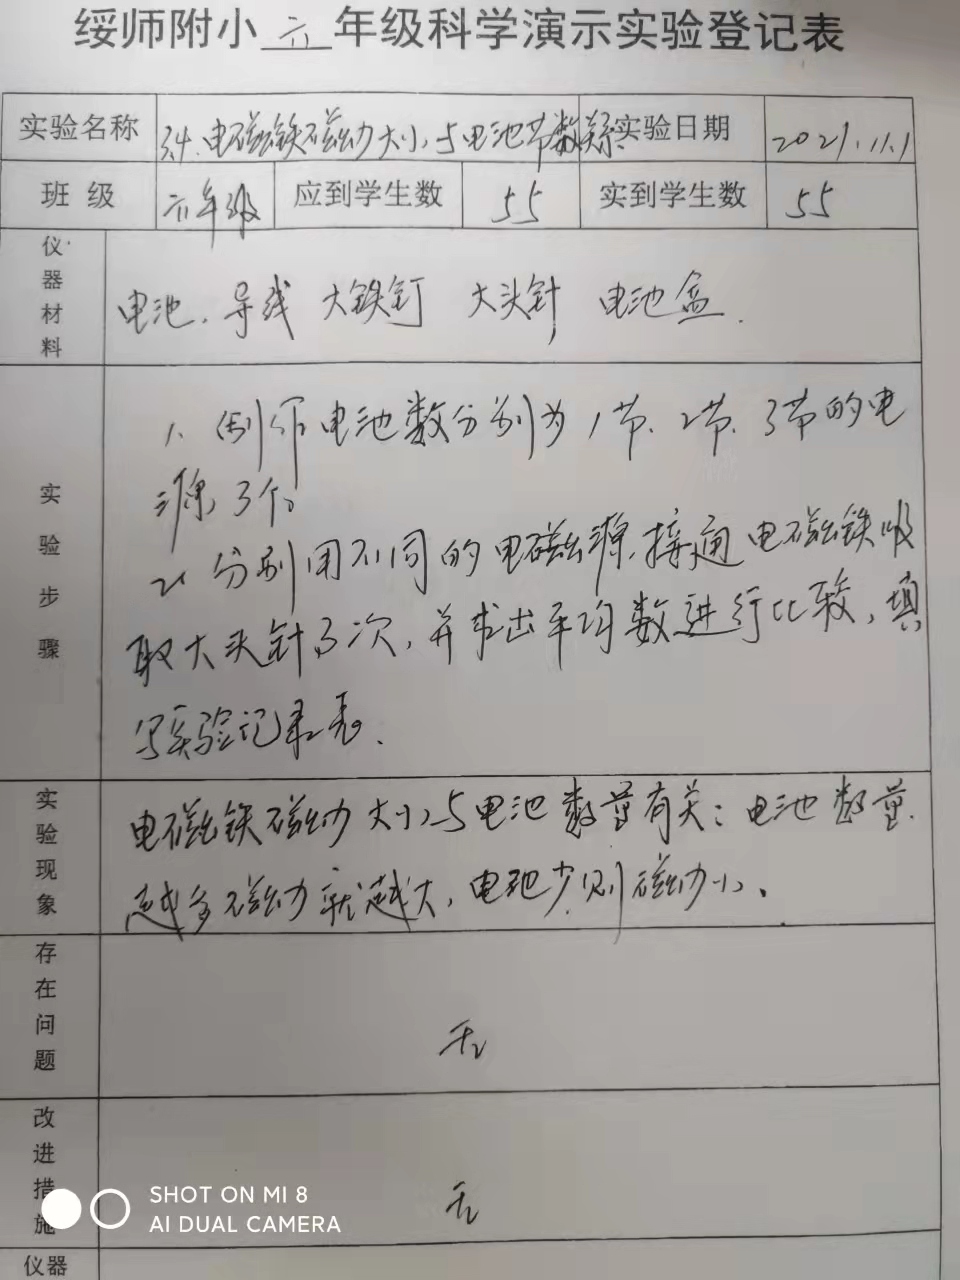 绥师附小六年级科学演示实验登记表
实验名称 34.电磁铁磁力大小与电池节数关系 实验日期 2021.11.1
班级 六年级 应到学生数 55 实到学生数 55
仪器材料 电池、导线 大铁钉 大头针 电池盒.
实验步骤
1、制作电池数分别为1节、2节、3节的电
源3个。
2、分别用不同的电磁源,接通电磁铁吸
取大头针3次,并求出平均数进行比较,填
写实验记录表.
实验现象
电磁铁磁力大小与电池数量有关;电池数量
越多磁力就越大,电池少则磁力小。
存在问题
无
改进措施
无
SHOT ON MI 8
AI DUAL CAMERA
仪器